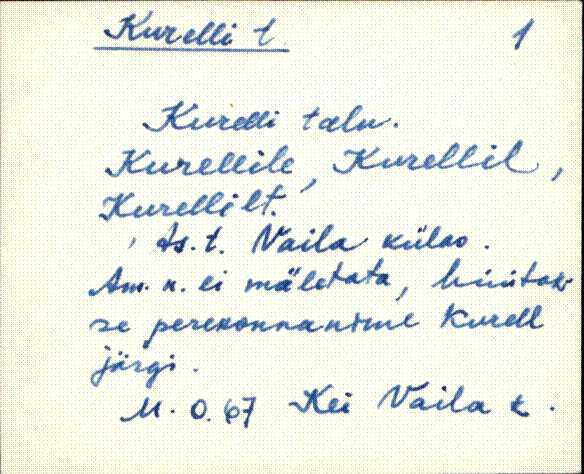 Kurelli t. 1
Kurelli talu.
Kurellile, Kurellil,
Kurellilt.
As. t. Vaila külas.
Am. n. ei mäletata, hüütak-
se perekonnanime Kurell
järgi.
M. O. 67 Kei Vaila k.